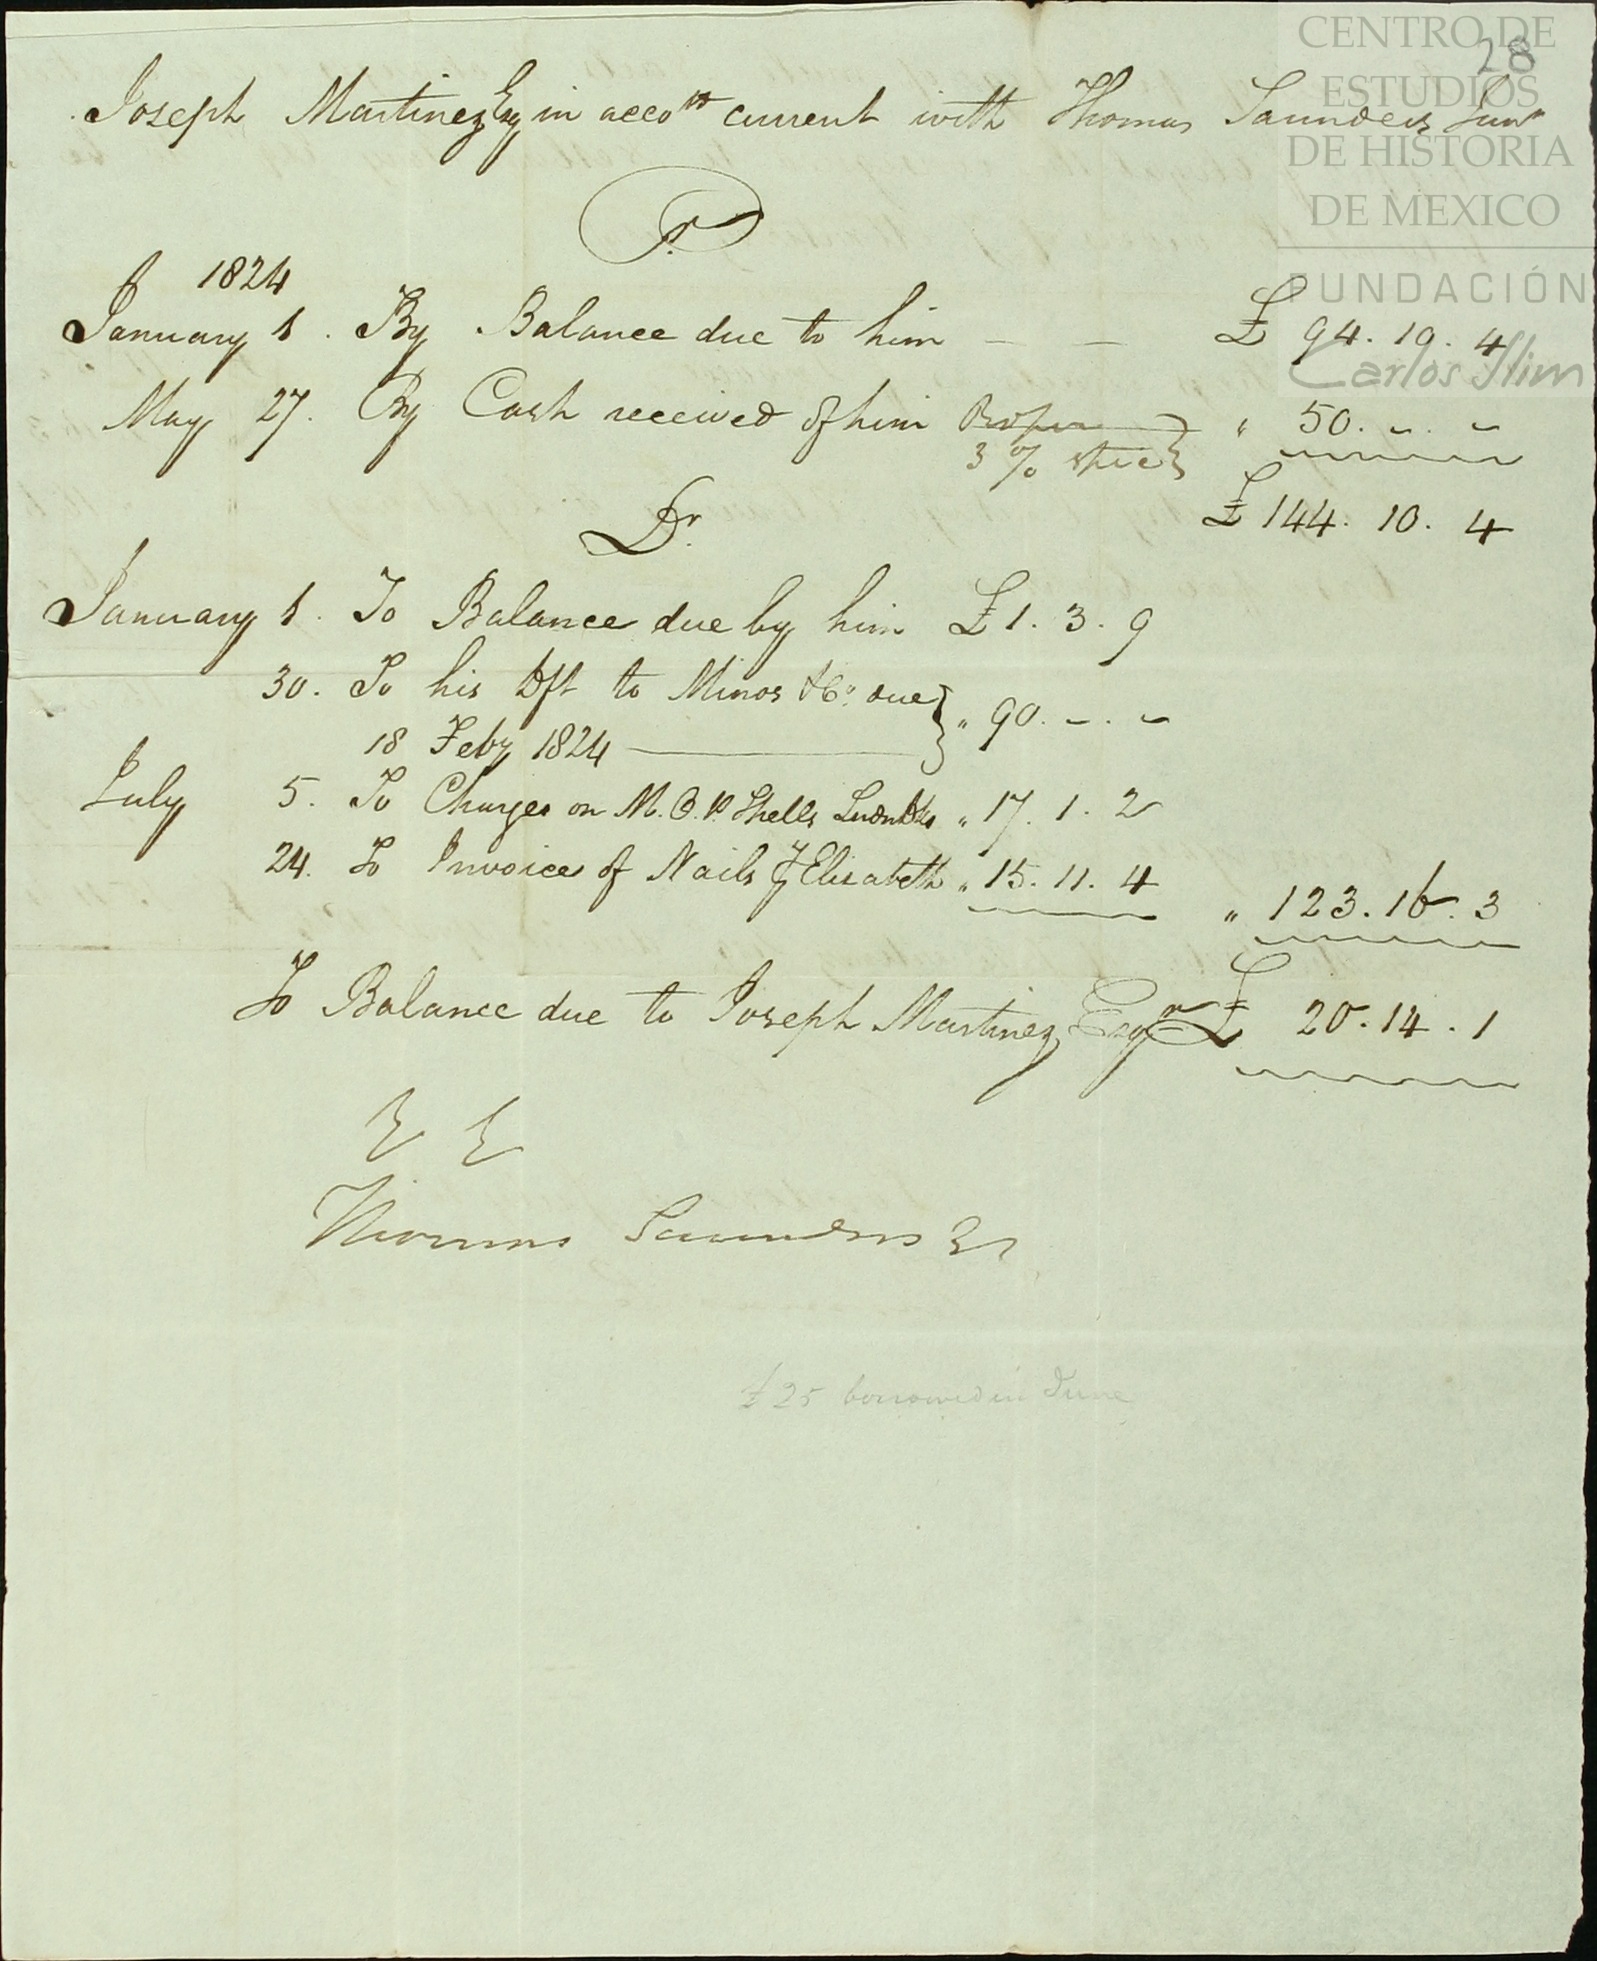 28
CENTRO DE
ESTUDIOS
DE HISTORIA
DE MEXICO
FUNDACIÓN
Carlos Slim
Joseph Martinez Esq in accots current with Thomas Saunders Junr
Cr.
1824
January 1. By Balance due to him — — £ 94. 10. 4
May 27. By Cash received of him " 50. -. -
3 %
£ 144. 10. 4
Dr.
January 1. To Balance due by him £ 1. 3. 9
30. To his dft to Minos & Co. due
18 Feby 1824 " 90. -. -
July 5. To Charges on M. O. P. Shells " 17. 1. 2
24. To Invoice of Nails Elizabeth " 15. 11. 4 " 123. 16. 3
To Balance due to Joseph Martinez Esqr £ 20. 14. 1
E E
Thomas Saunders Jr
£ 25 borrowed in June